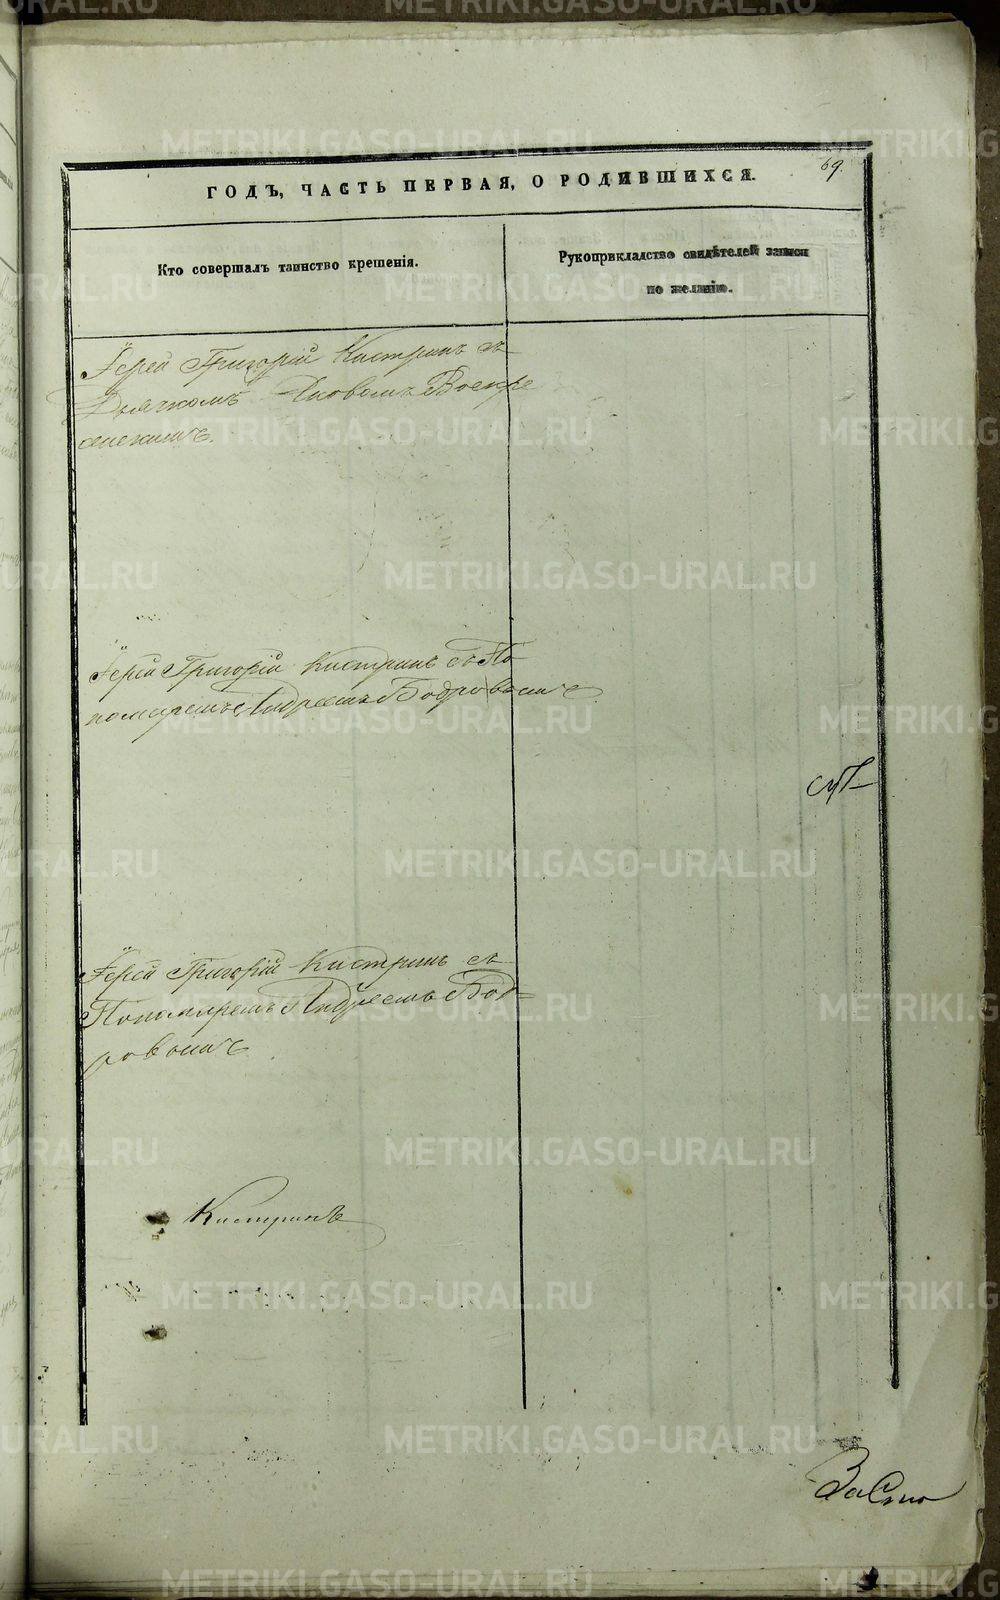 69.
ГОДЪ, ЧАСТЬ ПЕРВАЯ, О РОДИВШИХСЯ.
Кто совершалъ таинство крещенія.
Рукоприкладство свидѣтелей записи
по желанію.
Іерей Григорій Кистринъ съ
Дьячкомъ Яковомъ Воскре
сенскимъ.
Іерей Григорій Кистринъ съ По
номаремъ Андреемъ Бодровымъ
Іерей Григорій Кистринъ съ
Пономаремъ Андреемъ Бод-
ровымъ
Кистринъ
METRIKI.GASO-URAL.RU